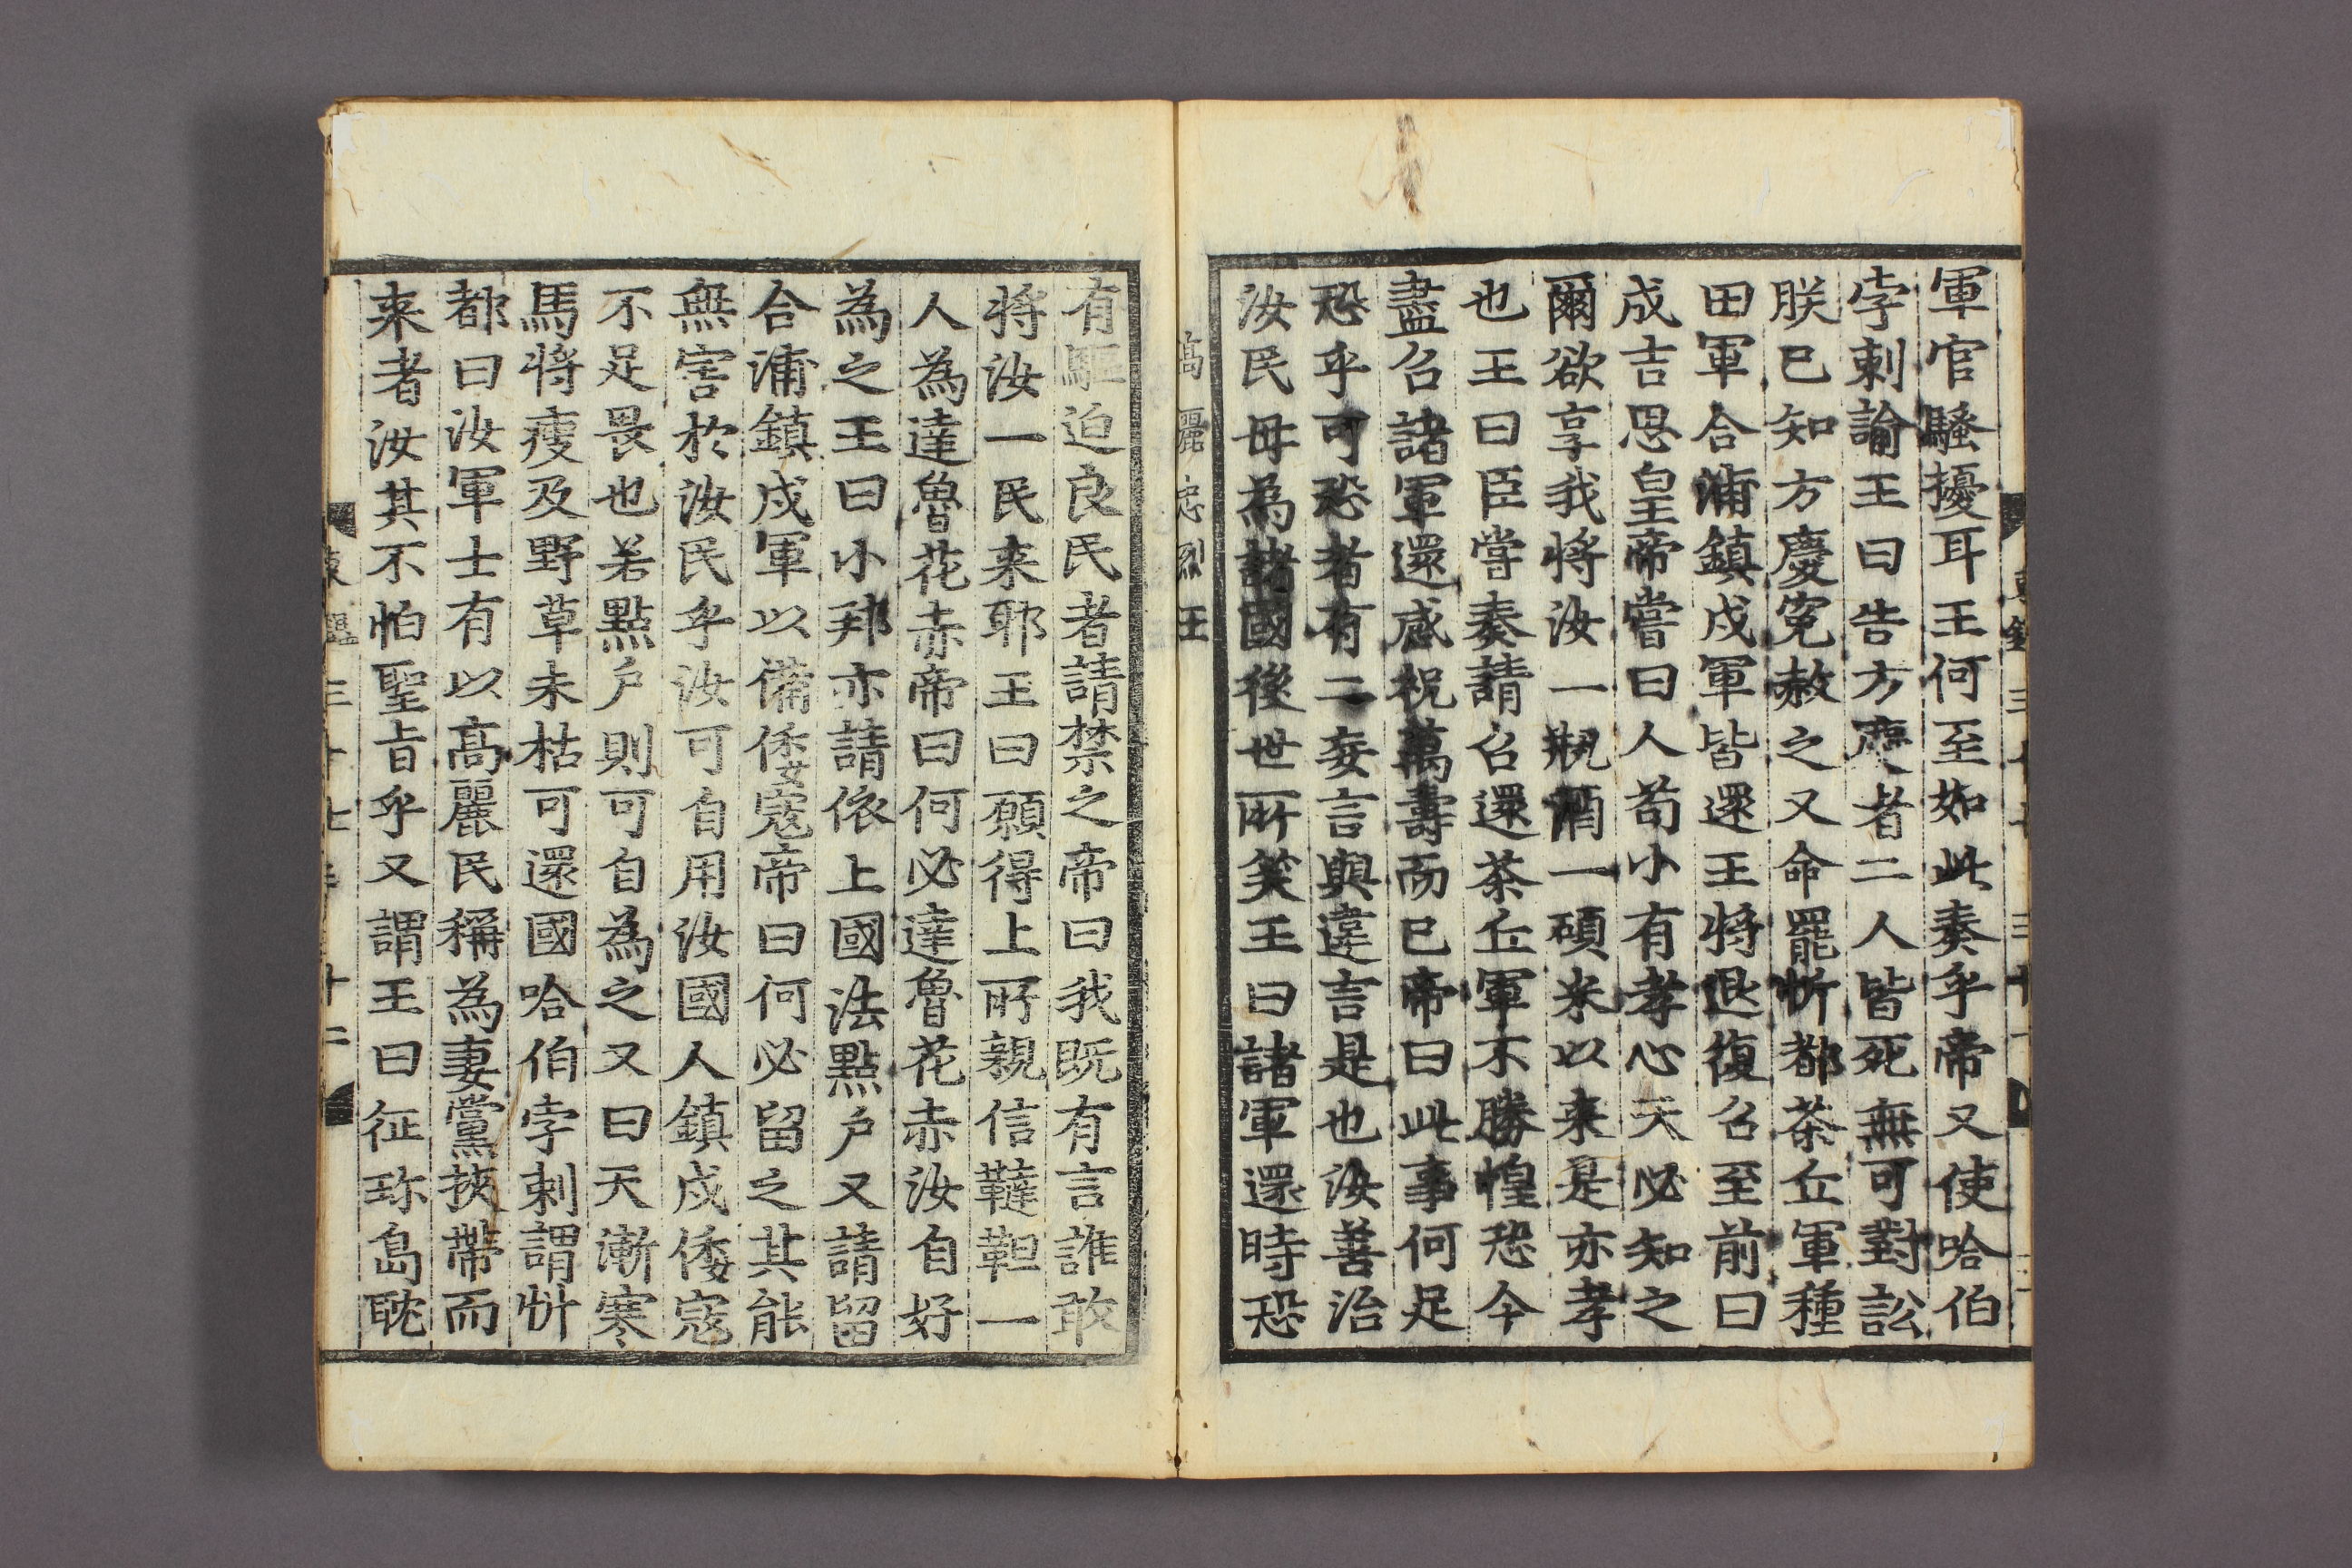 軍官騷擾耳王何至如此奏乎帝又使哈伯
孛剌諭王曰告方慶者二人皆死無可對訟
朕已知方慶寃赦之又命罷忻都茶丘軍種
田軍合浦鎮戍軍皆還王將退復召至前曰
成吉思皇帝嘗曰人苟小有孝心天必知之
爾欲享我將汝一瓶酒一碩米以来是亦孝
也王曰臣嘗奏請召還茶丘軍不勝惶恐今
盡召諸軍還感祝萬壽而已帝曰此事何足
恐乎可恐者有二妄言與違言是也汝善治
汝民毋為諸國後世所笑王曰諸軍還時恐
高麗忠烈王
有驅迫良民者請禁之帝曰我既有言誰敢
將汝一民来耶王曰願得上所親信韃靼一
人為達魯花赤帝曰何必達魯花赤汝自好
為之王曰小邦亦請依上國法點戶又請留
合浦鎮戍軍以備倭寇帝曰何必留之其能
無害於汝民乎汝可自用汝國人鎮戍倭寇
不足畏也若點戶則可自為之又曰天漸寒
馬將瘦及野草未枯可還國哈伯孛剌謂忻
都曰汝軍士有以高麗民稱為妻黨挾帶而
来者汝其不怕聖旨乎又謂王曰征珎島耽